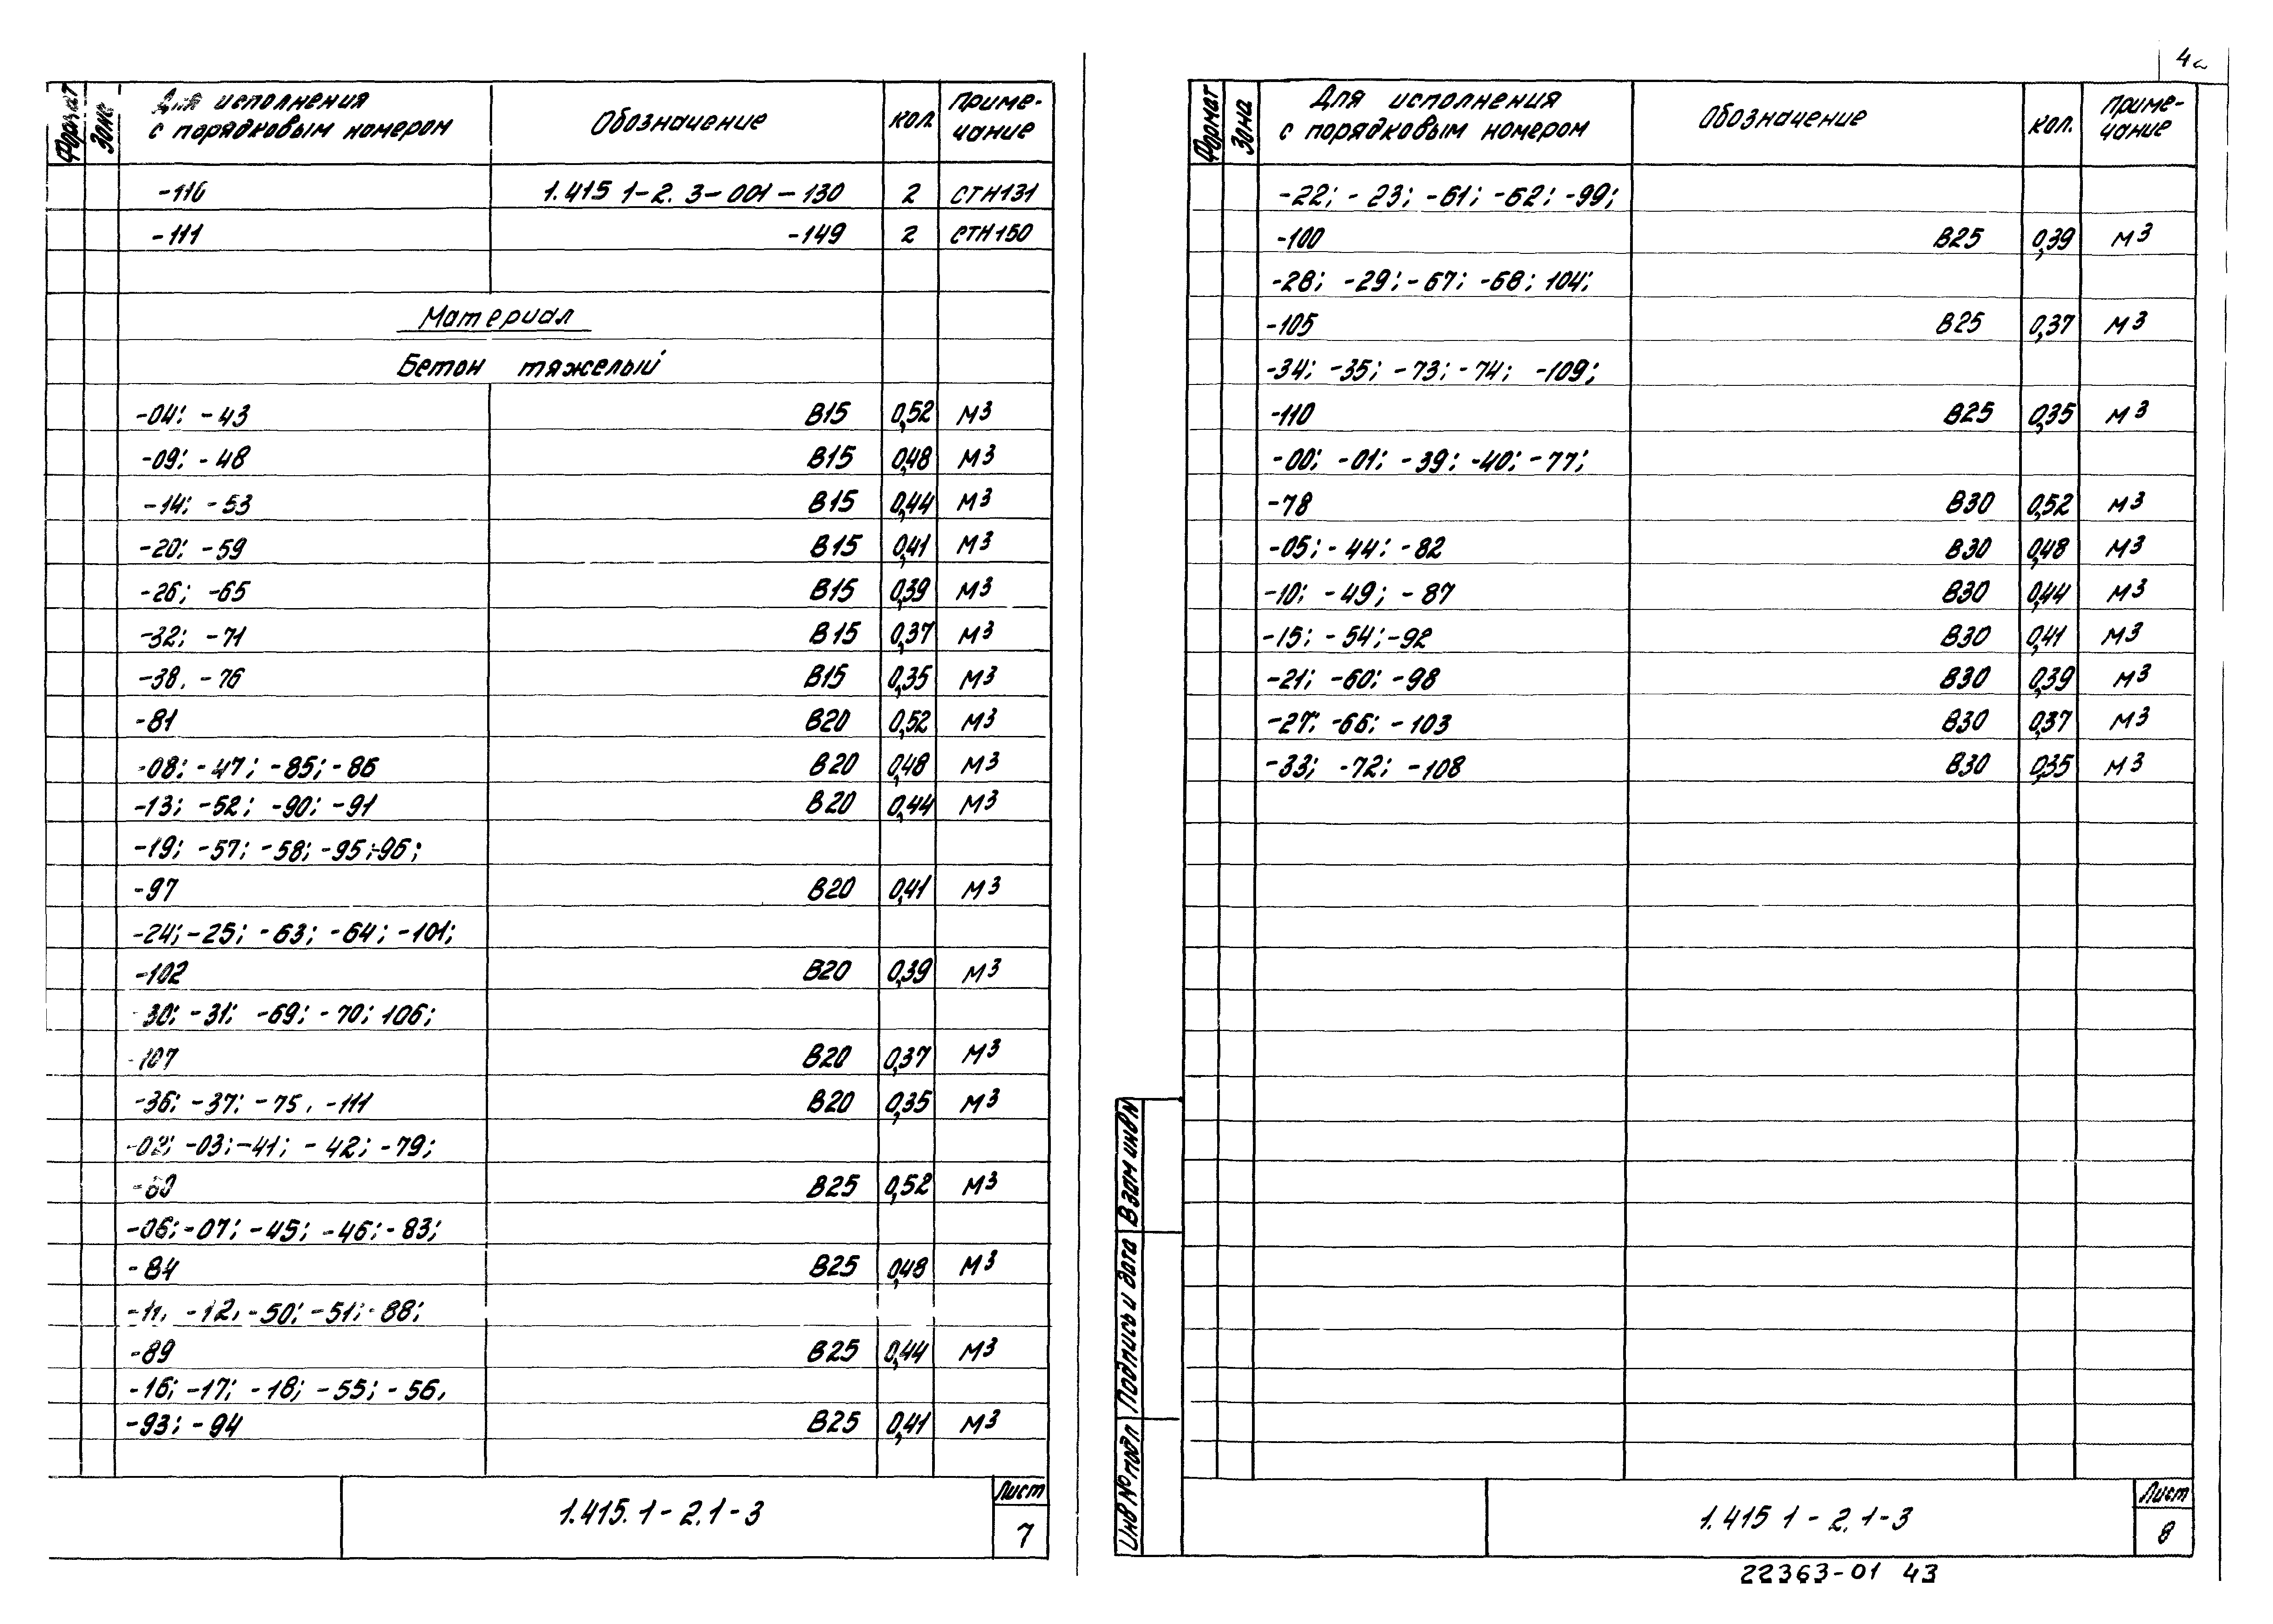 4а
Формат Зона Для исполнения с порядковым номером Обозначение кол. Приме-чание
-110 1.415 1-2. 3-001-130 2 СТН131
-111 -149 2 СТН150
Материал
Бетон тяжелый
-04; -43 В15 0,52 м3
-09; -48 В15 0,48 м3
-14; -53 В15 0,44 м3
-20; -59 В15 0,41 м3
-26; -65 В15 0,39 м3
-32; -71 В15 0,37 м3
-38. -76 В15 0,35 м3
-81 В20 0,52 м3
-08; -47; -85; -86 В20 0,48 м3
-13; -52; -90; -91 В20 0,44 м3
-19; -57; -58; -95;-96;
-97 В20 0,41 м3
-24; -25; -63; -64; -101;
-102 В20 0,39 м3
-30; -31; -69; -70; 106;
-107 В20 0,37 м3
-36; -37; -75, -111 В20 0,35 м3
-02; -03; -41; -42; -79;
-80 В25 0,52 м3
-06; -07; -45; -46; -83;
-84 В25 0,48 м3
-11, -12, -50; -51; -88;
-89 В25 0,44 м3
-16; -17; -18; -55; -56,
-93; -94 В25 0,41 м3
1.415.1-2.1-3
Лист
7
Формат Зона Для исполнения с порядковым номером Обозначение кол. Приме-чание
-22; -23; -61; -62; -99;
-100 В25 0,39 м3
-28; -29; -67; -68; 104;
-105 В25 0,37 м3
-34; -35; -73; -74; -109;
-110 В25 0,35 м3
-00; -01; -39; -40; -77;
-78 В30 0,52 м3
-05; -44; -82 В30 0,48 м3
-10; -49; -87 В30 0,44 м3
-15; -54; -92 В30 0,41 м3
-21; -60; -98 В30 0,39 м3
-27; -66; -103 В30 0,37 м3
-33; -72; -108 В30 0,35 м3
Инв № подл Подпись и дата Взам инв N
1.415 1-2.1-3
Лист
8
22363-01 43